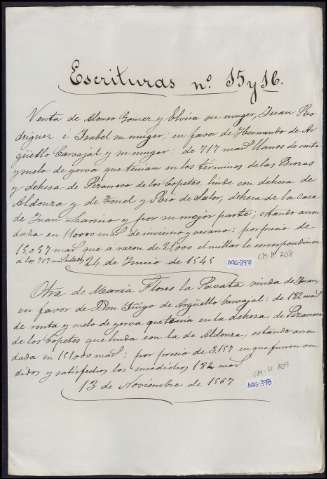 Escrituras nº 15 y 16.
Venta de Alonso Gomez y Elvira su muger, Juan Ro
driguez e Isabel su muger, en favor de Hernando de Ar
guello Carvajal y su muger de 717 mrs llanos de renta
y suelo de yerva que tenian en los términos de las
dehesa de de los Copetes linde con dehesa de
Aldonza y de y Rio de Salor, dehesa de la Casa
de Juan y por su mayor parte; estando arren
dada en 11.000 mrs de invierno y verano: por precio de
15.057 mrs que a razon de 21.000 el millar le correspondieron
a los 717
24 de Junio de 1545
Otra de Maria Flores la viuda de Juan
en favor de Don Diego de Argüello Carvajal: de 182 mrs
de renta y suelo de yerva que tenia en la dehesa de
de los Copetes que linda con la de Aldonza estando arren
dada en 15.000 mrs: por precio de que fueron ven
didos y satisfechos los susodichos 182 mrs
13 de Noviembre de 1567